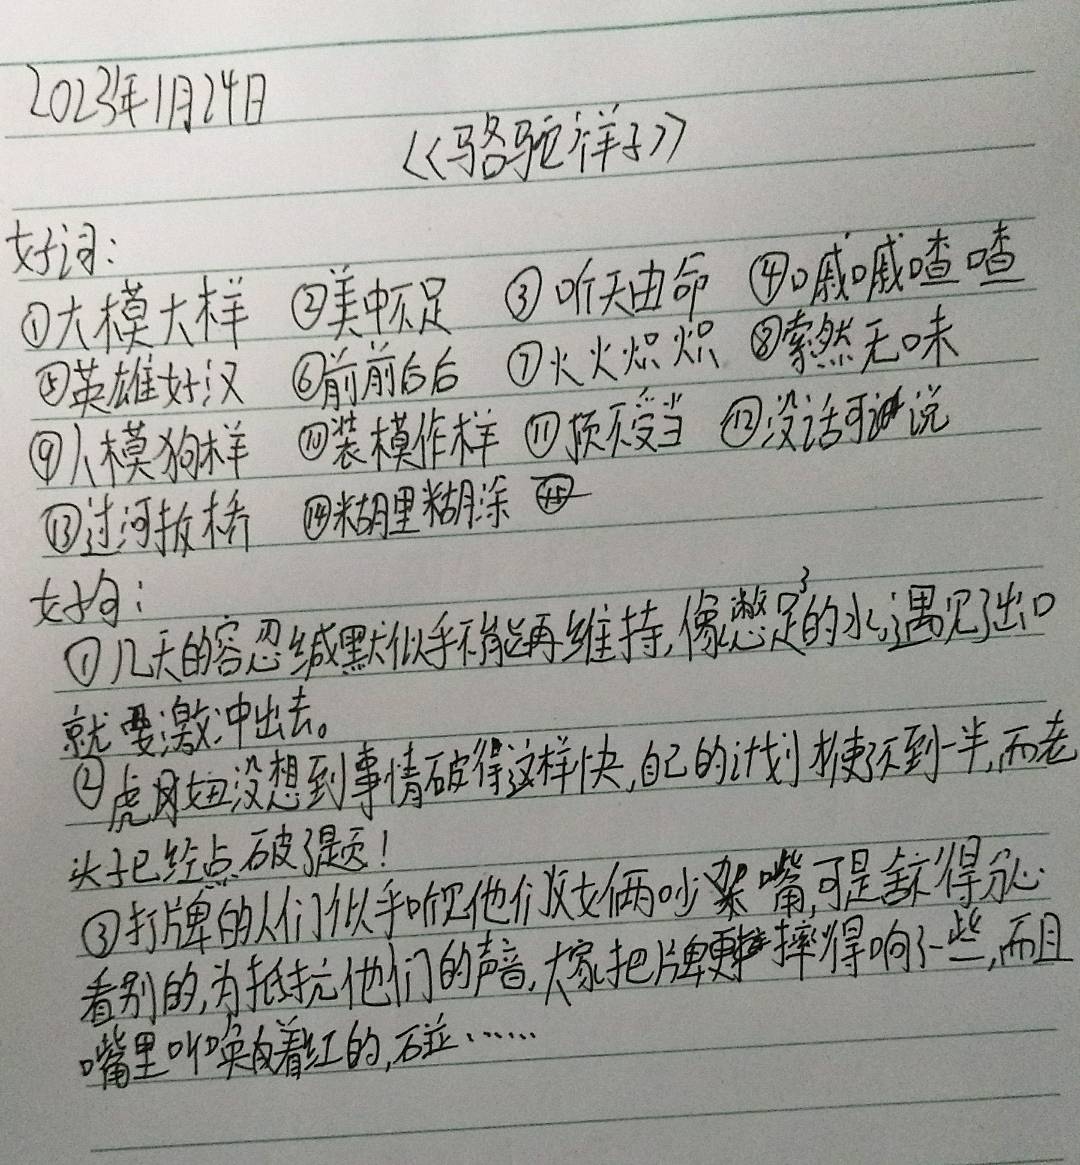 2023年1月24日
《骆驼祥子》
好词:
①大模大样 ②美中不足 ③听天由命 ④嘁嘁喳喳
⑤英雄好汉 ⑥前前后后 ⑦火火炽炽 ⑧索然无味
⑨人模狗样 ⑩装模作样 ⑪顶不受当 ⑫没话可说
⑬过河拆桥 ⑭糊里糊涂
好句:
①几天的容忍缄默似乎不能再维持,像憋足了的水,遇见了出口
就要激冲出去。
②虎妞没想到事情破得这样快,自己的计划才使了不到一半,而老
头子已经点破了题!
③打牌的人们似乎听见他们父女俩吵架嘴,可是舍不得分心
看别的,为抵抗他们的声音,大家把牌更摔得响了一些,而且
嘴里叫唤着红的,碰……